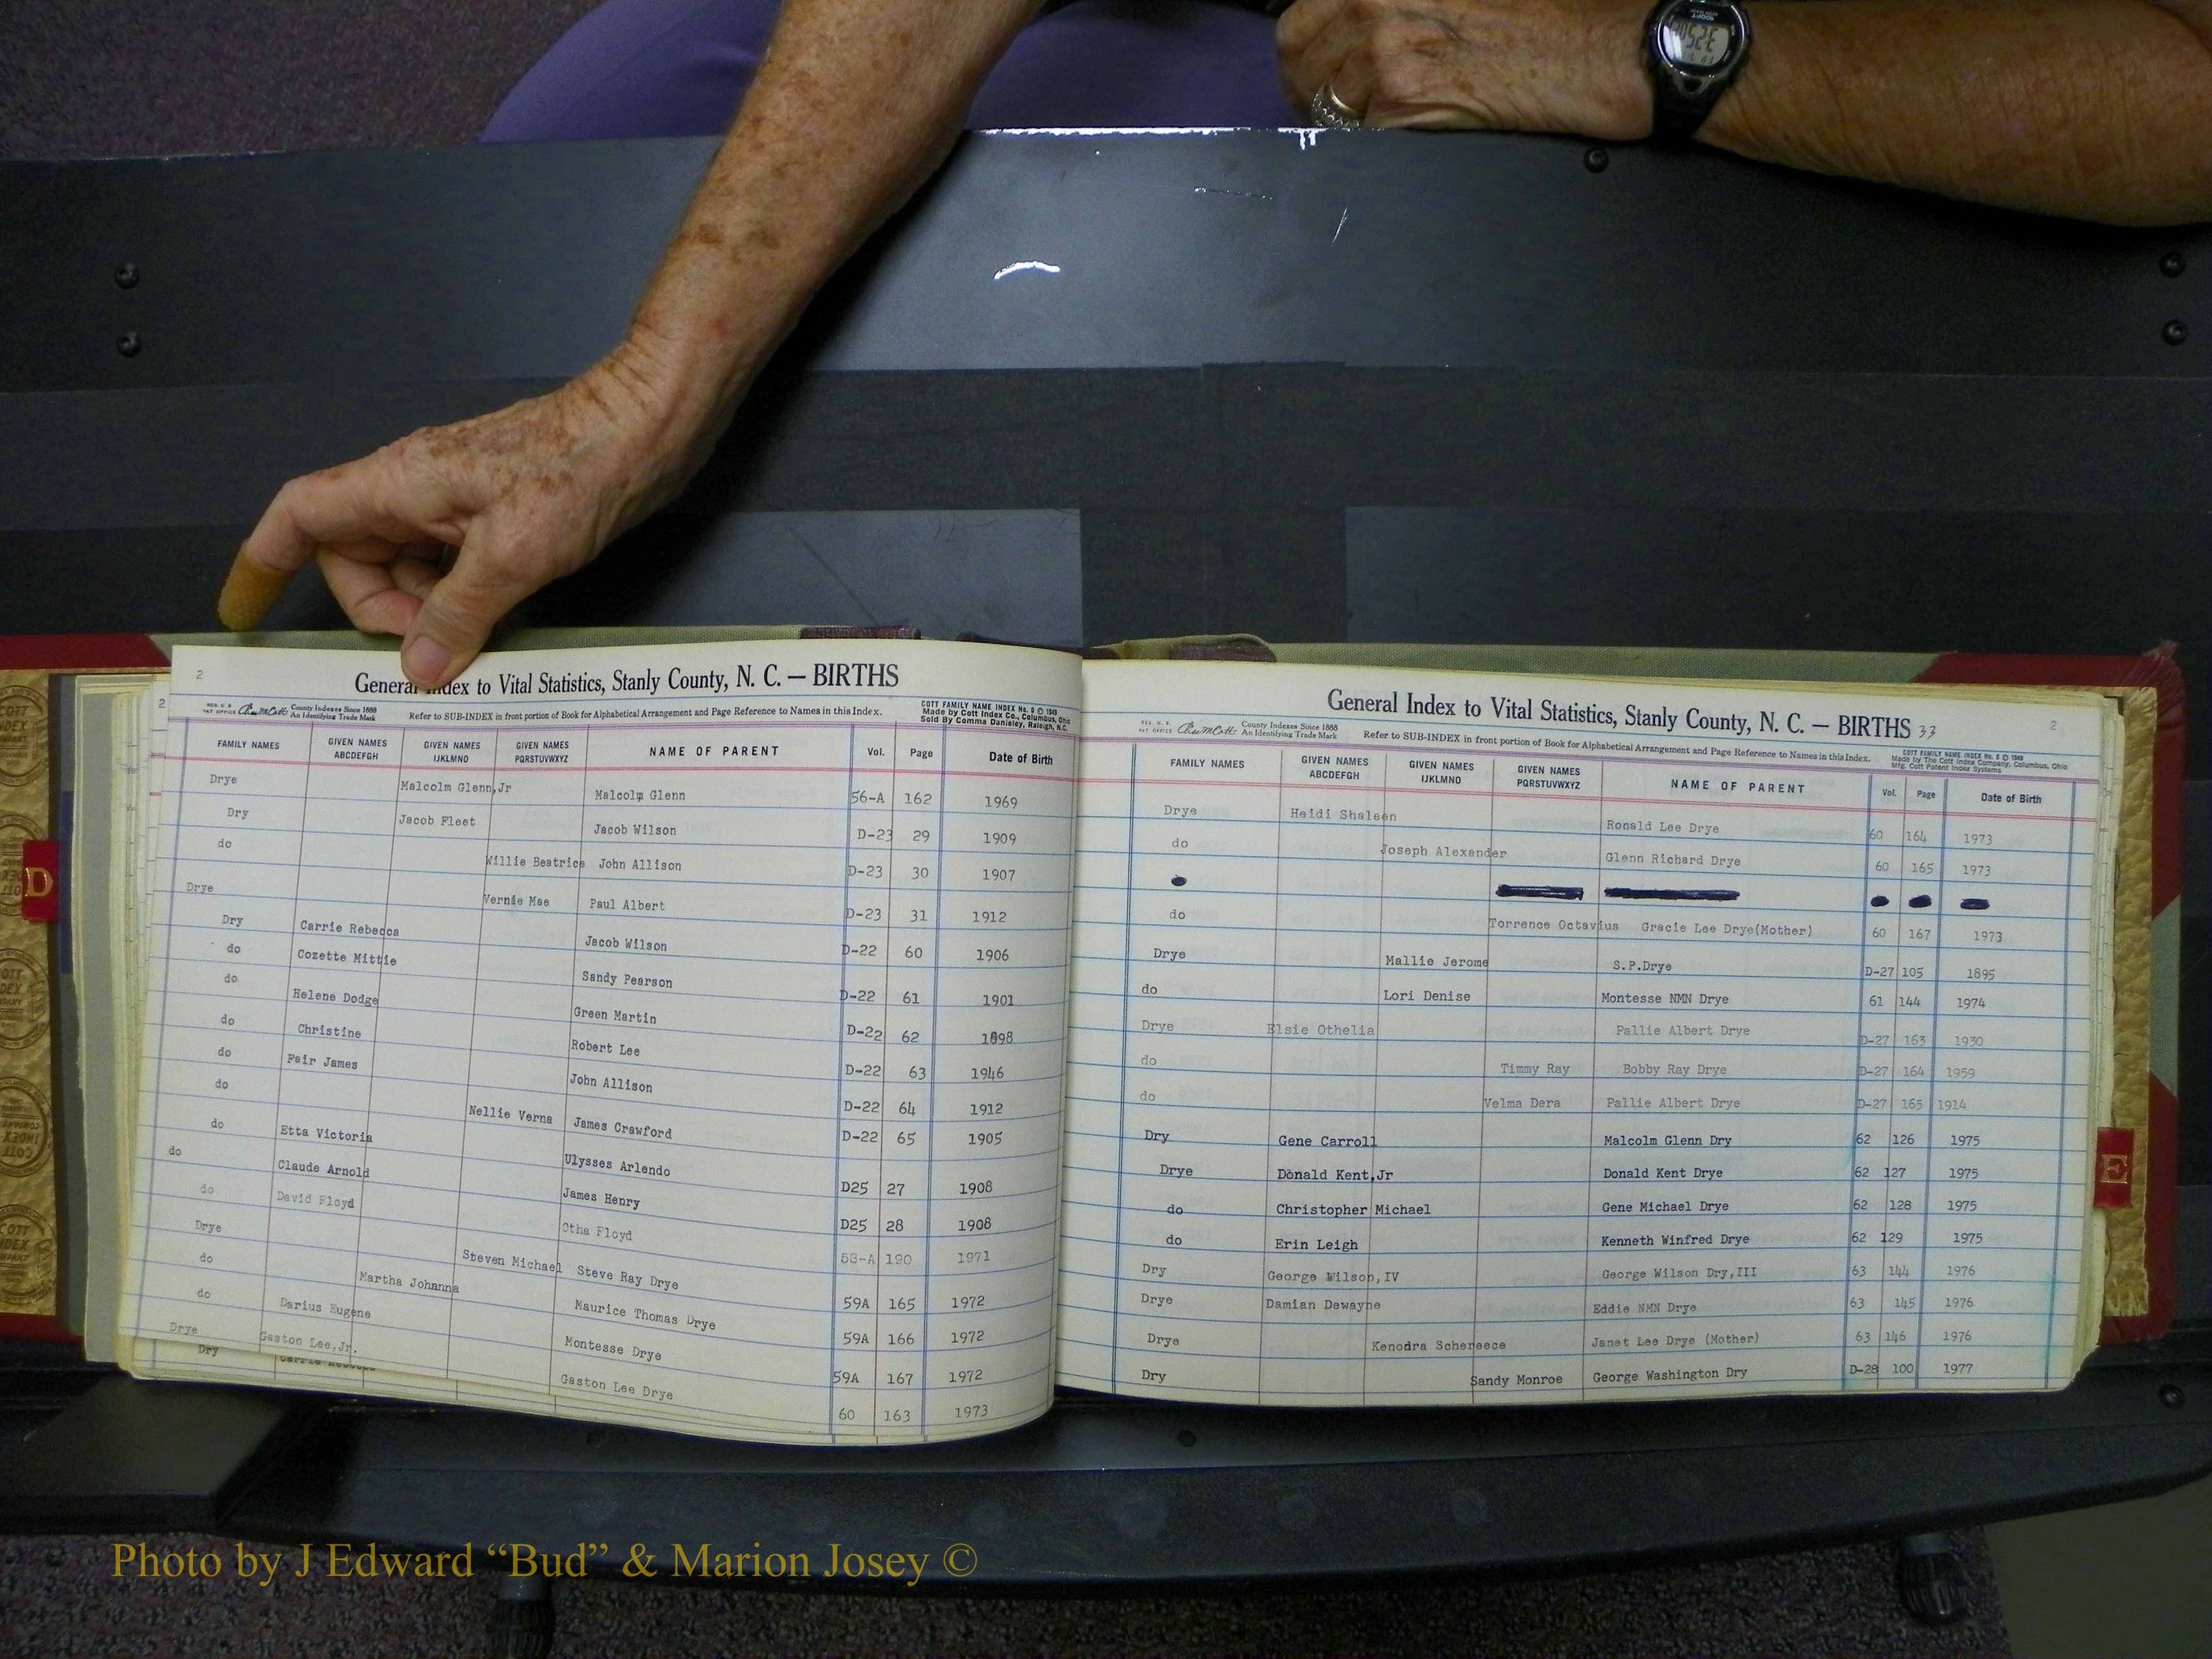 2
General Index to Vital Statistics, Stanly County, N. C. — BIRTHS
County Indexes Since 1888
An Identifying Trade Mark
Refer to SUB-INDEX in front portion of Book for Alphabetical Arrangement and Page Reference to Names in this Index.
COTT FAMILY NAME INDEX No. 8 © 1949
Made by Cott Index Co., Columbus, Ohio
Sold By Comma Danieley, Raleigh, N.C.
FAMILY NAMES GIVEN NAMES ABCDEFGH GIVEN NAMES IJKLMNO GIVEN NAMES PQRSTUVWXYZ NAME OF PARENT Vol. Page Date of Birth
Drye Malcolm Glenn,Jr Malcolm Glenn 56-A 162 1969
Dry Jacob Fleet Jacob Wilson D-23 29 1909
do Willie Beatrice John Allison D-23 30 1907
Drye Vernie Mae Paul Albert D-23 31 1912
Dry Carrie Rebecca Jacob Wilson D-22 60 1906
do Cozette Mittie Sandy Pearson D-22 61 1901
do Helene Dodge Green Martin D-22 62 1898
do Christine Robert Lee D-22 63 1946
do Fair James John Allison D-22 64 1912
do Nellie Verna James Crawford D-22 65 1905
do Etta Victoria Ulysses Arlendo D25 27 1908
do Claude Arnold James Henry D25 28 1908
do David Floyd Otha Floyd 58-A 190 1971
Drye Steven Michael Steve Ray Drye 59A 165 1972
do Martha Johanna Maurice Thomas Drye 59A 166 1972
do Darius Eugene Montesse Drye 59A 167 1972
Drye Gaston Lee,Jr. Gaston Lee Drye 60 163 1973
Dry
General Index to Vital Statistics, Stanly County, N. C. — BIRTHS 33
2
County Indexes Since 1888
An Identifying Trade Mark
Refer to SUB-INDEX in front portion of Book for Alphabetical Arrangement and Page Reference to Names in this Index.
COTT FAMILY NAME INDEX No. 8 © 1949
Made by The Cott Index Company, Columbus, Ohio
Mfg. Cott Patent Index Systems
FAMILY NAMES GIVEN NAMES ABCDEFGH GIVEN NAMES IJKLMNO GIVEN NAMES PQRSTUVWXYZ NAME OF PARENT Vol. Page Date of Birth
Drye Heidi Shaleen Ronald Lee Drye 60 164 1973
do Joseph Alexander Glenn Richard Drye 60 165 1973
do Torrence Octavius Gracie Lee Drye(Mother) 60 167 1973
Drye Mallie Jerome S.P.Drye D-27 105 1895
do Lori Denise Montesse NMN Drye 61 144 1974
Drye Elsie Othelia Pallie Albert Drye D-27 163 1930
do Timmy Ray Bobby Ray Drye D-27 164 1959
do Velma Dera Pallie Albert Drye D-27 165 1914
Dry Gene Carroll Malcolm Glenn Dry 62 126 1975
Drye Donald Kent,Jr Donald Kent Drye 62 127 1975
do Christopher Michael Gene Michael Drye 62 128 1975
do Erin Leigh Kenneth Winfred Drye 62 129 1975
Dry George Wilson,IV George Wilson Dry,III 63 144 1976
Drye Damian Dewayne Eddie NMN Drye 63 145 1976
Drye Kenodra Schereece Janet Lee Drye (Mother) 63 146 1976
Dry Sandy Monroe George Washington Dry D-28 100 1977
D
E
Photo by J Edward “Bud” & Marion Josey ©